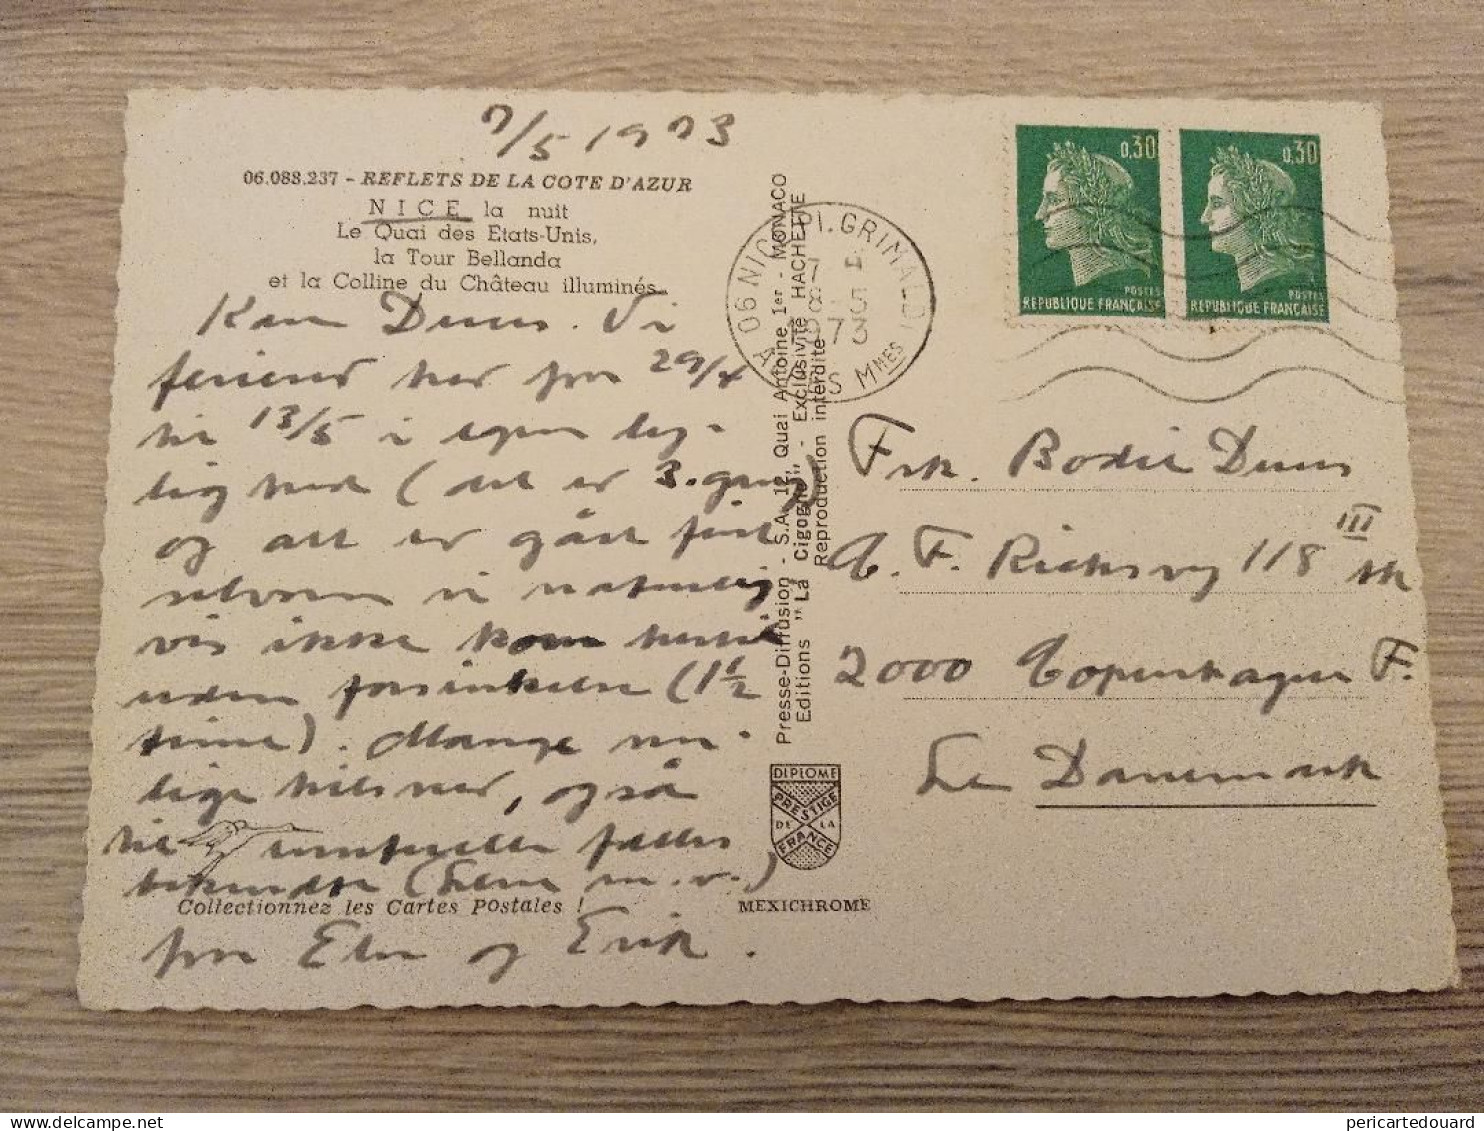 7/5 1973
06.088.237 - REFLETS DE LA COTE D'AZUR
NICE la nuit
Le Quai des Etats-Unis,
la Tour Bellanda
et la Colline du Château illuminés.
Vi
ferierer her fra 29/4
til 13/5 i egen lej-
lighed (det er 3. gang)
og alt er gået fint
selvom vi naturlig
vis ikke kom hertil
uden forsinkelse (1 1/2
time). Mange mu-
lige hilsner, også
til eventuelle fælles
bekendte (Lene m.v.)
Collectionnez les Cartes Postales !
fra Else og Erik.
Presse-Diffusion - S.A. 12, Quai Antoine 1er - MONACO
Editions "La Cigogne" - Exclusivité HACHETTE
Reproduction interdite
DIPLOME
PRESTIGE
DE LA
FRANCE
MEXICHROME
06 NICE PL. GRIMALDI
8 5
1973
A MMES
0,30
POSTES
REPUBLIQUE FRANÇAISE
0,30
POSTES
REPUBLIQUE FRANÇAISE
Frk. Bodil
C. F. Richsvej 118 III th
2000 Copenhague F.
Le Danemark
pericartedouard